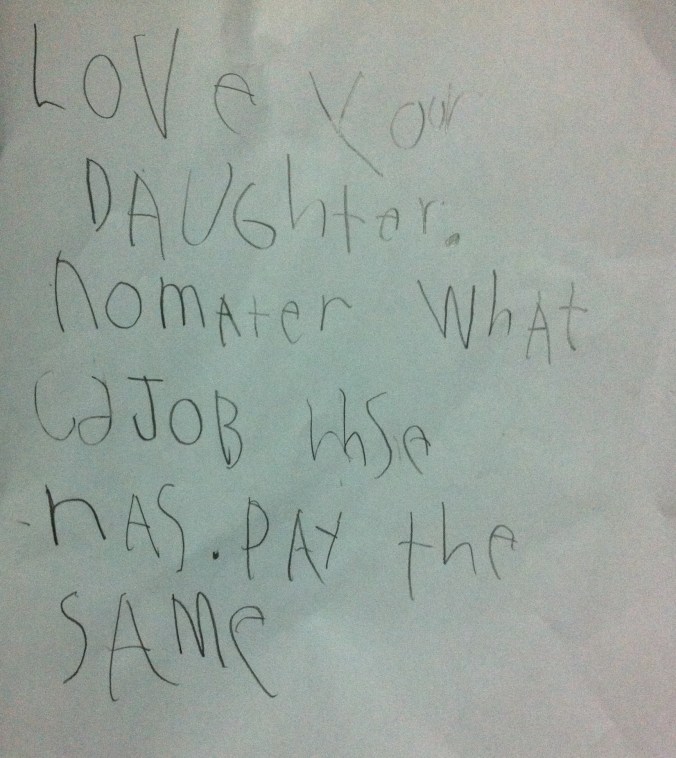 Love Your
DAUGhter.
nomAter WhAt
JOB
hAS. PAY the
SAMe